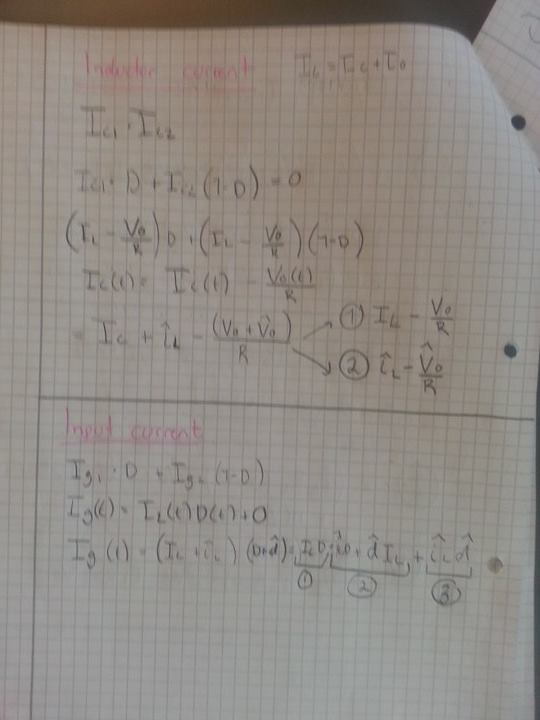 Inductor current I_L = I_C + I_0
I_C1 · I_C2
I_C1 · D + I_C2 (1-D) = 0
(I_L - V_0/R) D + (I_L - V_0/R) (1-D)
I_C(t) = I_L(t) - V_0(t)/R
= I_L + î_L - (V_0 + v̂_0)/R
① I_L - V_0/R
② î_L - v̂_0/R
Input current
I_g1 · D + I_g2 (1-D)
I_g(t) = I_L(t) D(t) + 0
I_g(t) = (I_L + î_L) (D+d̂) = I_L D + î_L D + d̂ I_L + î_L d̂
① ② ③